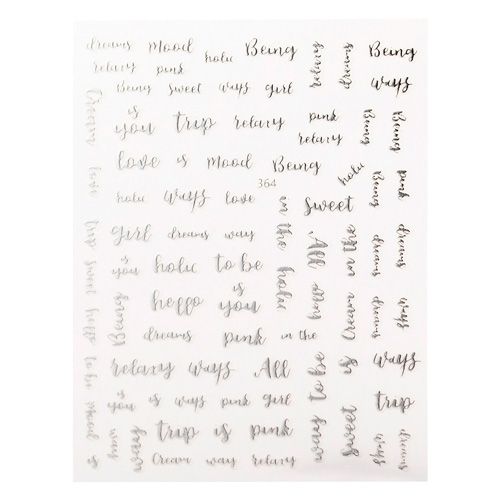 dreams mood holic Being Being
relaxy pink
Being sweet ways girl ways
is
you trip relaxy pink
relaxy
Being
Being
love is mood Being holic
364
holic ways love sweet
Being
pink
girl dreams way in the
All
is
you holic to be holic
heffo is
you
dreams pink in the
relaxy ways All ways
is
you is ways pink girl trip
trip is pink
Cream way relaxy
Cream
love
trip sweet heffo to be mood is
dreams
dreams
dreams
ways
Cream
to be
sweet
way
way
dreams